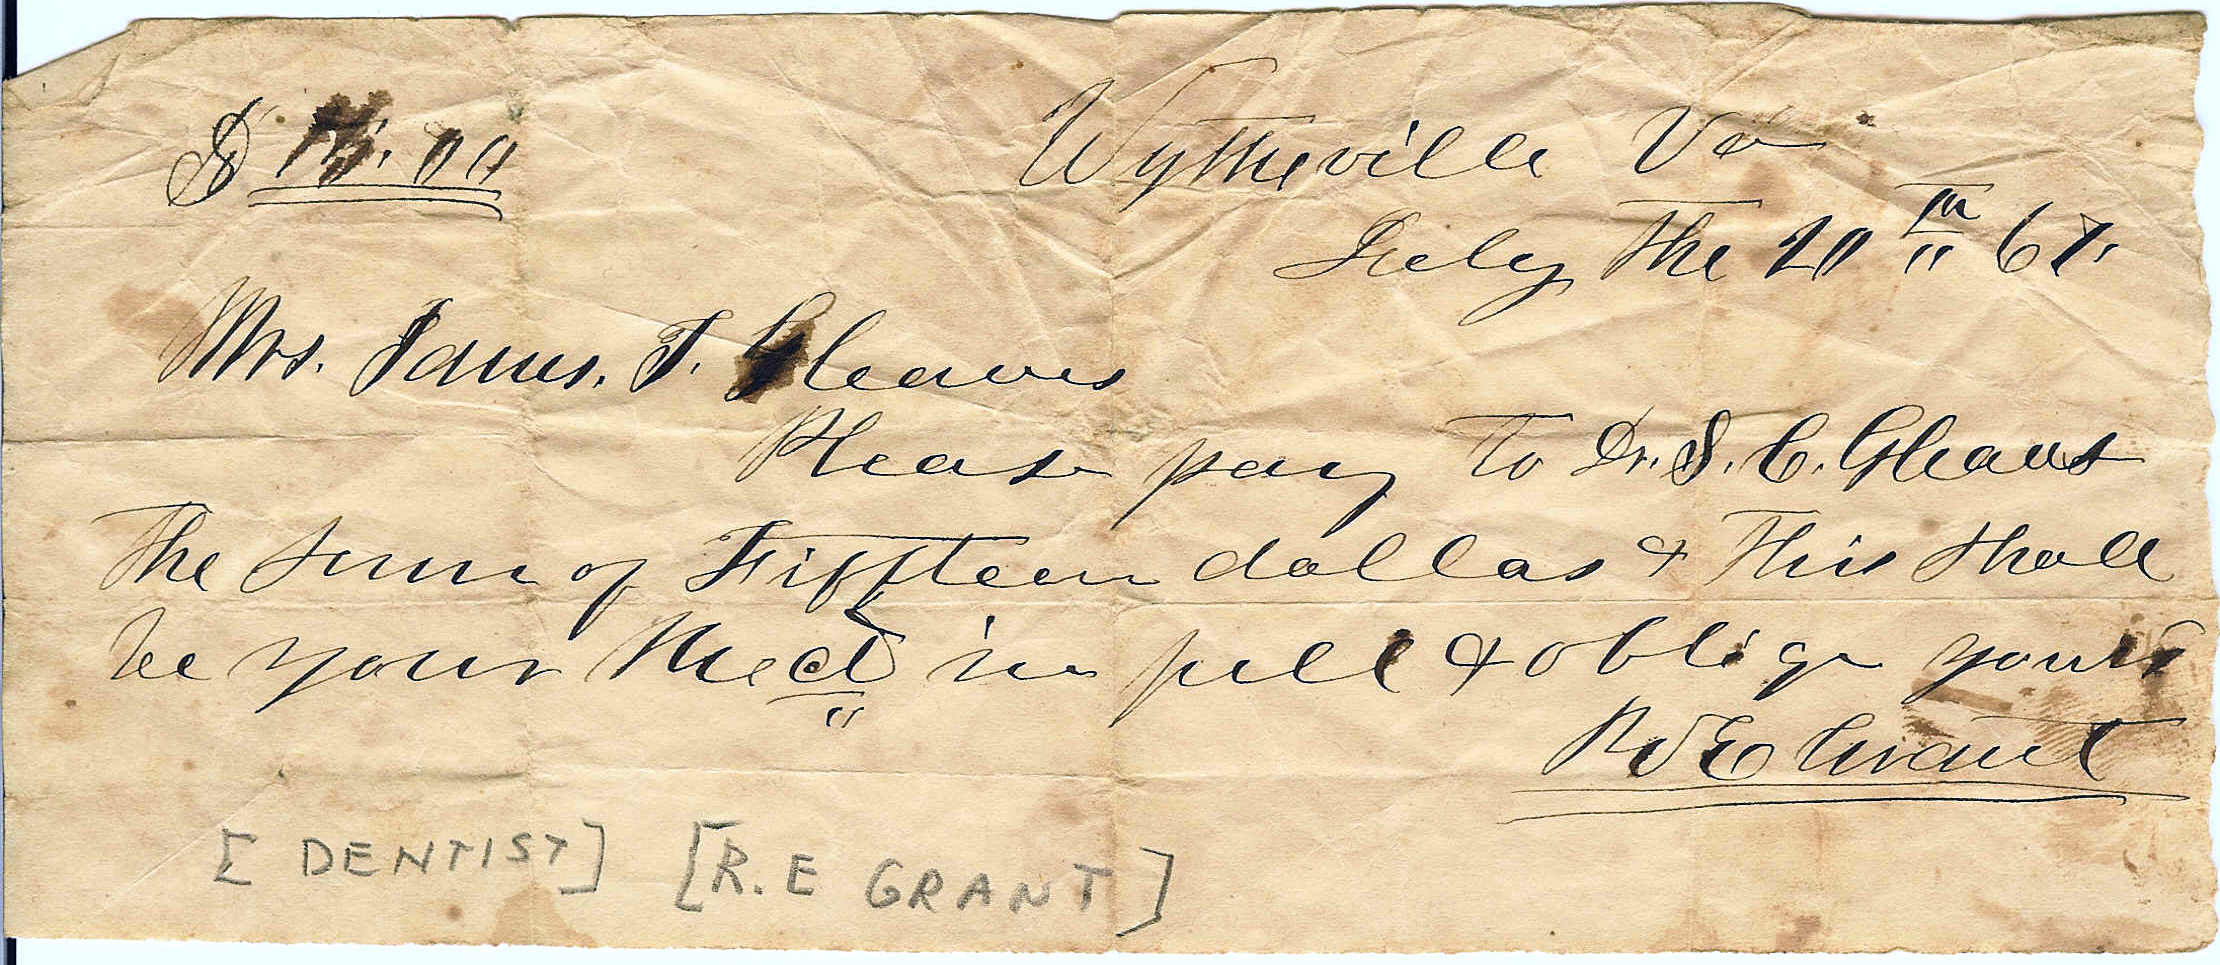 $ 15.00
Wytheville Va
July the 20th 67.
Mrs. James. T. Gleaves
Please pay to Dr. S. C. Gleaves
the sum of Fifteen dollas & This shall
be your Recd in full & oblige yours
R E Grant
[ DENTIST ] [R. E GRANT ]